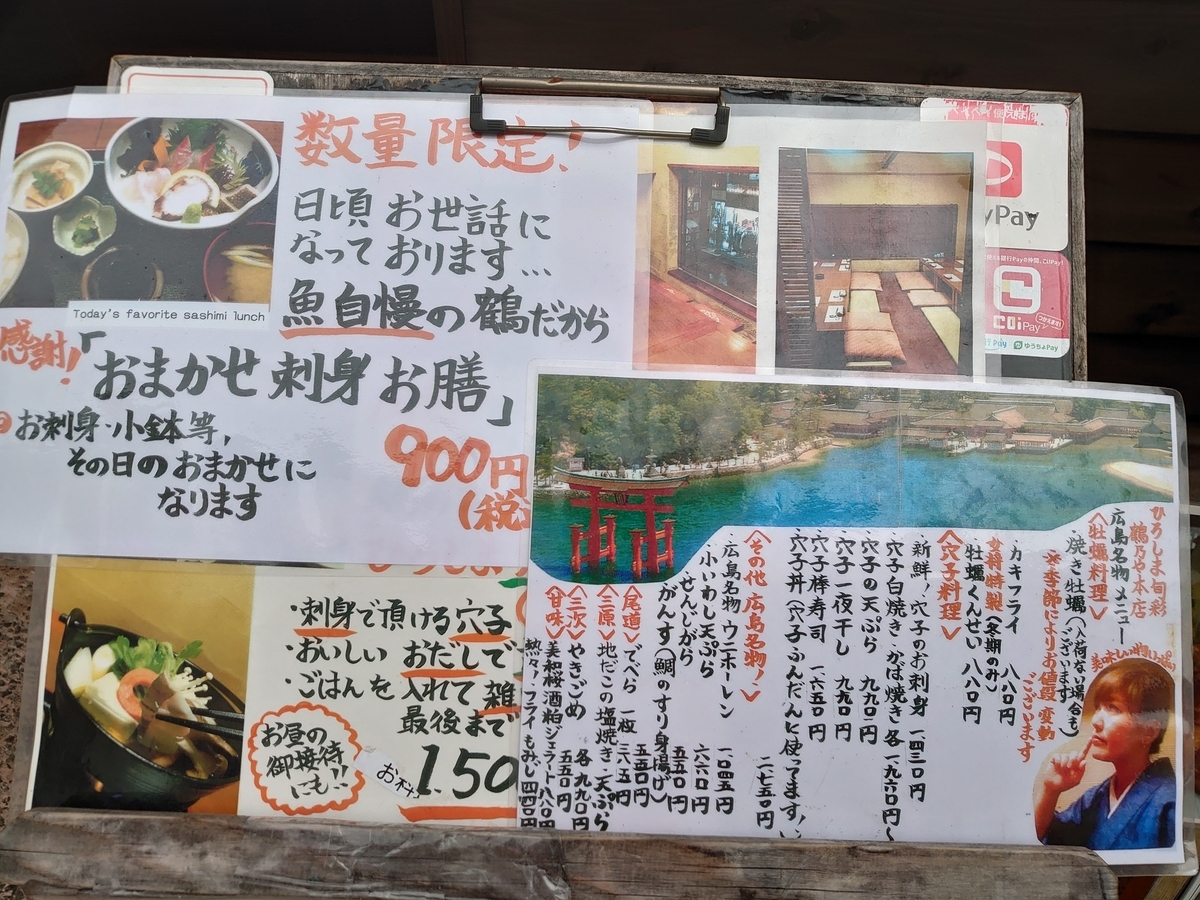 数量限定!
日頃 お世話に
なって おります…
魚自慢の鶴だから
Today's favorite sashimi lunch
感謝!
「おまかせ刺身お膳」
お刺身・小鉢等,
その日の おまかせに
なります
900円
(税
yPay
COiPay
ゆうちょPay
・刺身で頂ける穴子
・おいしい おだしで
・ごはんを 入れて 雑
最後まで
お昼の
御接待
にも!!
1.50
ひろしま旬彩
鶴乃や本店
広島名物メニュー
<牡蠣料理>
・焼き牡蠣(入荷ない場合も)
ございます
※季節によりお値段変動
ございます
カキフライ 八八〇円
女将特製(冬期のみ)
牡蠣くんせい 八八〇円
<穴子料理>
・新鮮!穴子のお刺身 一四三〇円
穴子白焼き・かば焼き 各一九六〇円〜
穴子の天ぷら 九九〇円
穴子一夜干し 九九〇円
穴子棒寿司 一六五〇円
穴子丼(穴子ふんだんに使ってます!)
二七五〇円
<その他 広島名物!>
・広島名物ウニホーレン 一〇四五円
小いわし天ぷら 六六〇円
せんじがら 五五〇円
がんす(鯛のすり身揚げ) 五五〇円
<尾道>でべら 一枚 三八五円
<三原>地だこの塩焼き・天ぷら
各九九〇円
<三次>やきごめ 五五〇円
<甘味>美和桜酒粕ジェラート 八八〇円
熱々!フライもみじ 四四〇円
美味しい物いっぱい